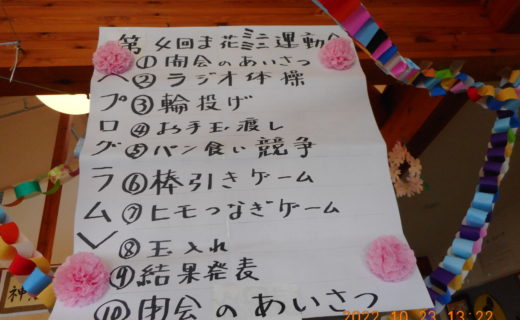 第4回ま花ミニ運動会
<プログラム>
①開会のあいさつ
②ラジオ体操
③輪投げ
④お手玉渡し
⑤パン食い競争
⑥棒引きゲーム
⑦ヒモつなぎゲーム
⑧玉入れ
⑨結果発表
⑩閉会のあいさつ
神
2022 10 23 13:22